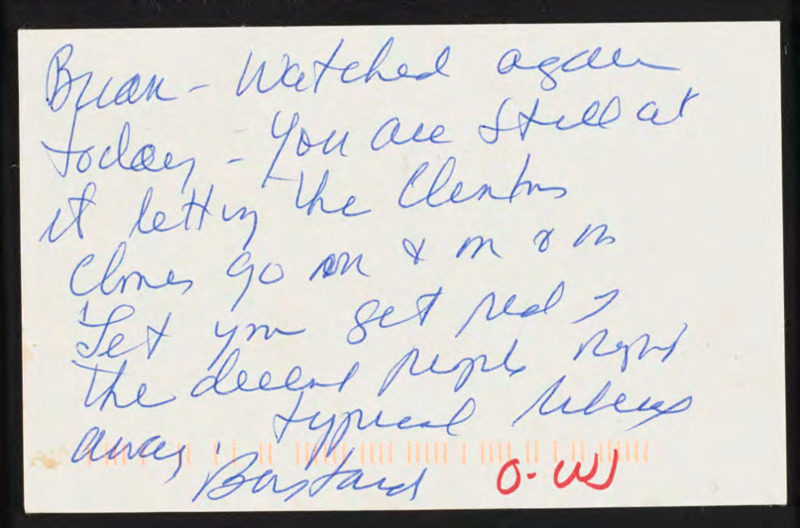 Brian - Watched again
today - You are still at
it letting the Clintons
Clones go on & on & on
Yet you get rid of
the decent people right
away. typical
Bastard O-W